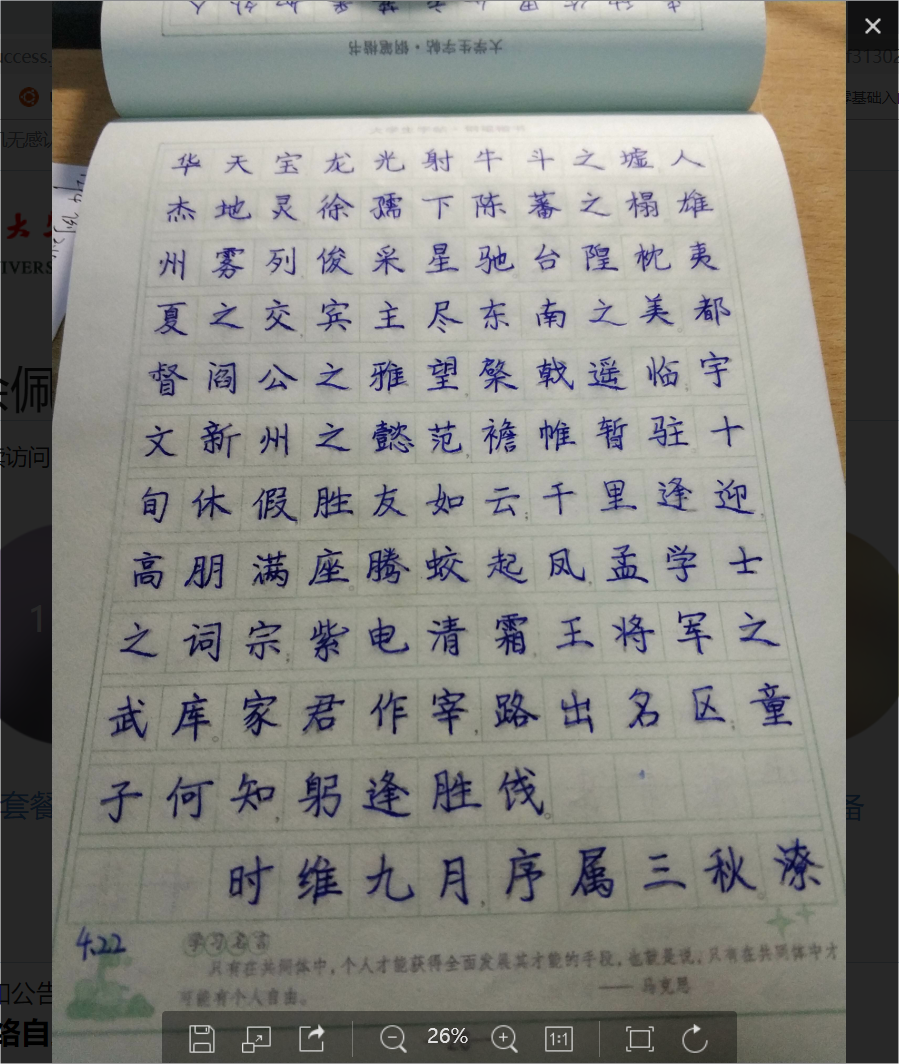 大学生字帖·钢笔楷书
华天宝龙光射牛斗之墟人
杰地灵徐孺下陈蕃之榻雄
州雾列俊采星驰台隍枕夷
夏之交,宾主尽东南之美。都
督阎公之雅望,棨戟遥临;宇
文新州之懿范,襜帷暂驻。十
旬休假,胜友如云;千里逢迎,
高朋满座。腾蛟起凤,孟学士
之词宗;紫电清霜,王将军之
武库。家君作宰,路出名区;童
子何知,躬逢胜饯。
时维九月,序属三秋。潦
4.22
学习名言
只有在共同体中,个人才能获得全面发展其才能的手段,也就是说,只有在共同体中才
可能有个人自由。
——马克思
26%
1:1